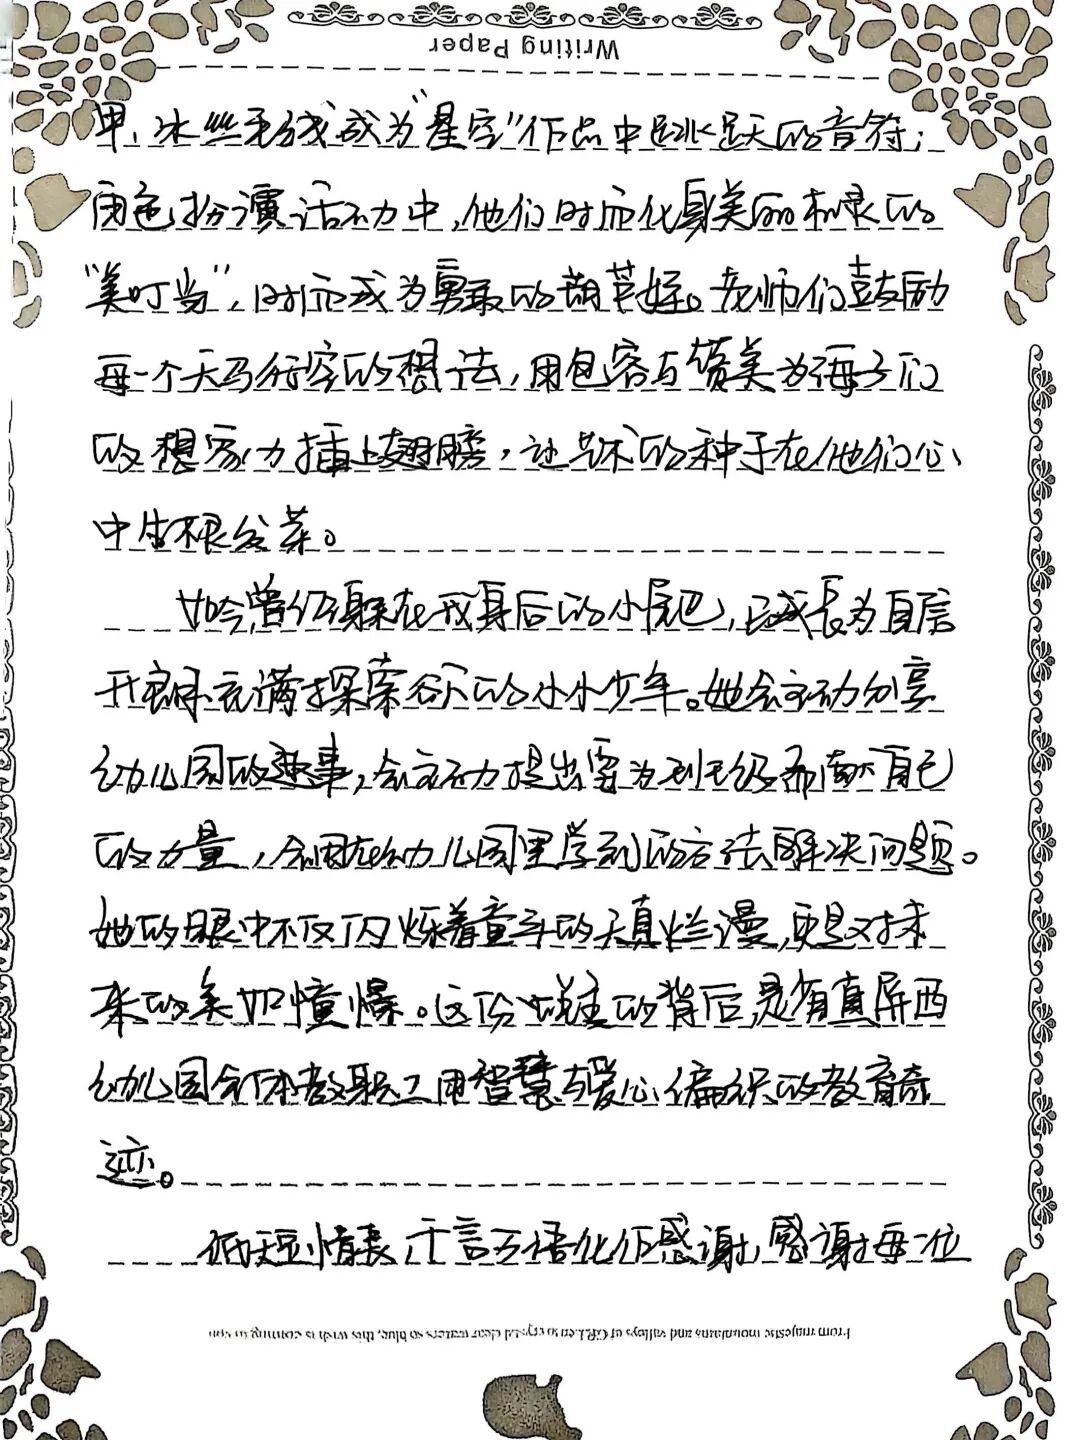 Writing Paper
甲,冰丝毛线成为“星空”作品中跳跃的音符;
角色扮演活动中,他们时而化身美丽的
“美叮当”,时而成为勇敢的葫芦娃。老师们鼓励
每一个天马行空的想法,用包容与赞美为孩子们
的想象力插上翅膀,让艺术的种子在他们心
中生根发芽。
如今,曾经躲在我身后的小尾巴,已成长为自信
开朗充满探索欲的小小少年。她会主动分享
幼儿园的趣事,会主动提出要为班级贡献自己
的力量,会用在幼儿园里学到的方法解决问题。
她的眼中不仅闪烁着童年的天真烂漫,更是对未
来的美好憧憬。这份蜕变的背后,是有真屏西
幼儿园全体教职工用智慧与爱心编织的教育奇
迹。
纸短情长,千言万语化作感谢,感谢每一位
From majestic mountains and valleys of GREEN to crystal clear waters so blue, this wish is coming to you